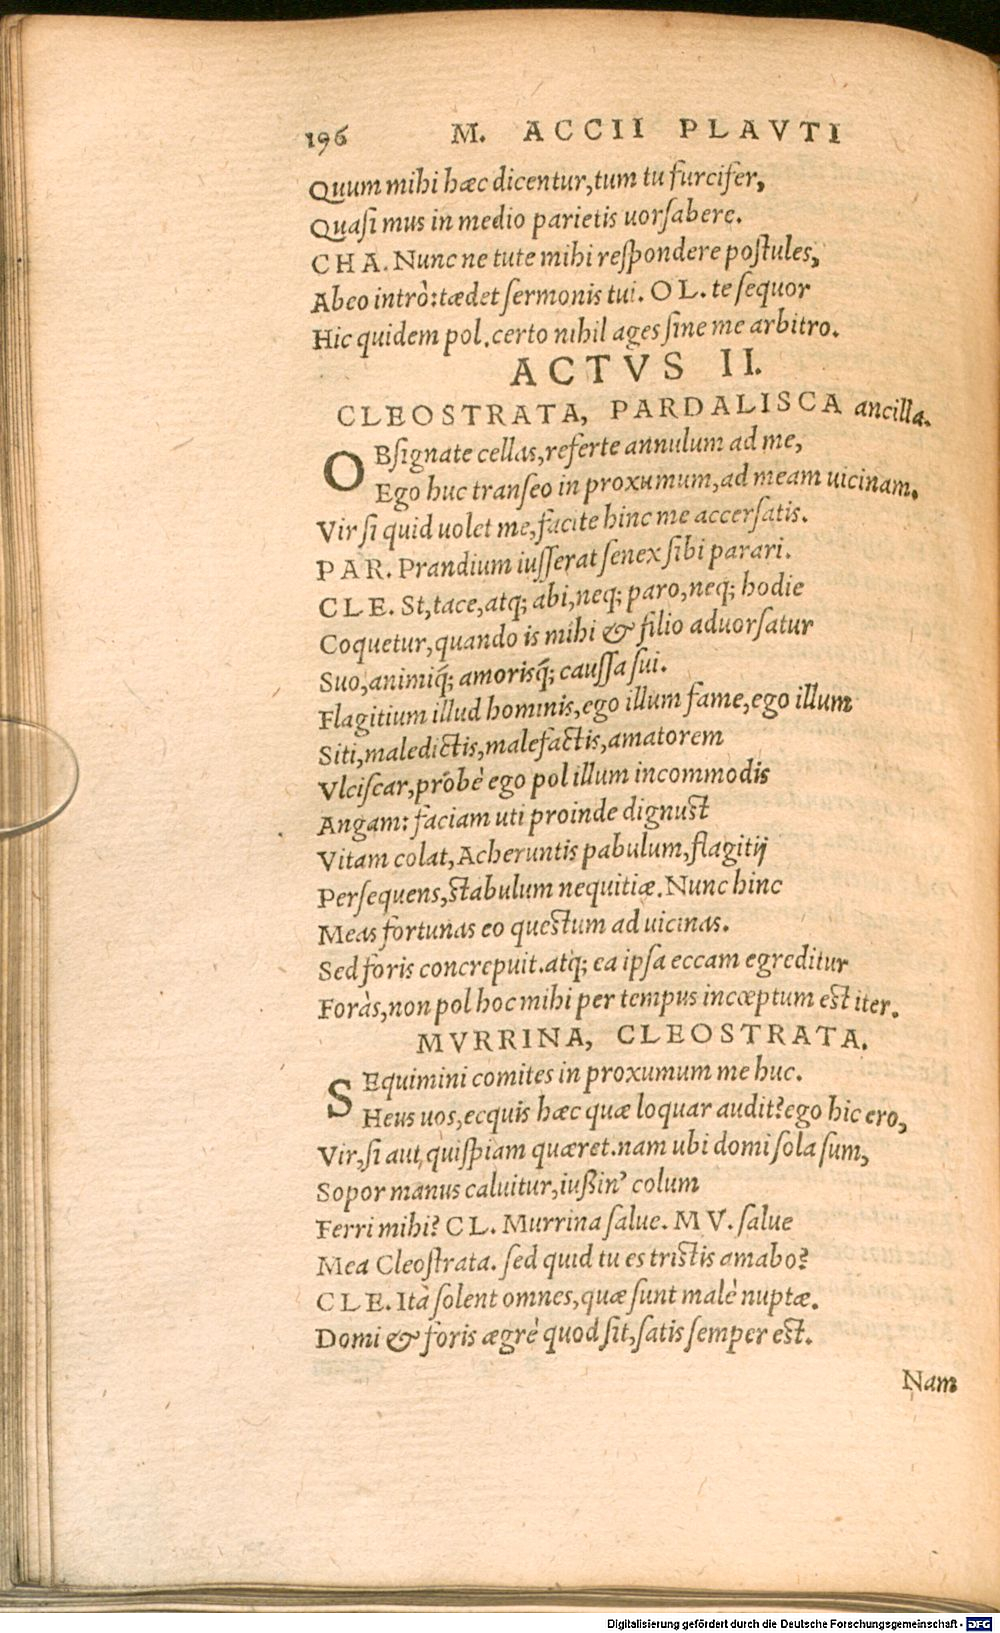 196 M. ACCII PLAVTI
Quum mihi hæc dicentur,tum tu furcifer,
Quasi mus in medio parietis uorsabere.
CHA. Nunc ne tute mihi respondere postules,
Abeo intrò: tædet sermonis tui. OL. te sequor
Hic quidem pol. certo nihil ages sine me arbitro.
ACTVS II.
CLEOSTRATA, PARDALISCA ancilla.
OBsignate cellas, referte annulum ad me,
Ego huc transeo in proxumum, ad meam uicinam.
Vir si quid uolet me, facite hinc me accersatis.
PAR. Prandium iusserat senex sibi parari.
CLE. St, tace, atq; abi, neq; paro, neq; hodie
Coquetur, quando is mihi & filio aduorsatur
Suo, animiq́; amorisq́; caussa sui.
Flagitium illud hominis, ego illum fame, ego illum
Siti, maledictis, malefactis, amatorem
Vlciscar, probè ego pol illum incommodis
Angam: faciam uti proinde dignust
Vitam colat, Acheruntis pabulum, flagitij
Persequens, stabulum nequitiæ. Nunc hinc
Meas fortunas eo questum ad uicinas.
Sed foris concrepuit. atq; ea ipsa eccam egreditur
Foràs, non pol hoc mihi per tempus incœptum est iter.
MVRRINA, CLEOSTRATA.
SEquimini comites in proxumum me huc.
Heus uos, ecquis hæc quæ loquar audit? ego hic ero,
Vir, si aut quispiam quæret. nam ubi domi sola sum,
Sopor manus caluitur, iußin' colum
Ferri mihi? CL. Murrina salue. MV. salue
Mea Cleostrata. sed quid tu es tristis amabo?
CLE. Ità solent omnes, quæ sunt malè nuptæ.
Domi & foris ægrè quod sit, satis semper est.
Nam
Digitalisierung gefördert durch die Deutsche Forschungsgemeinschaft - DFG